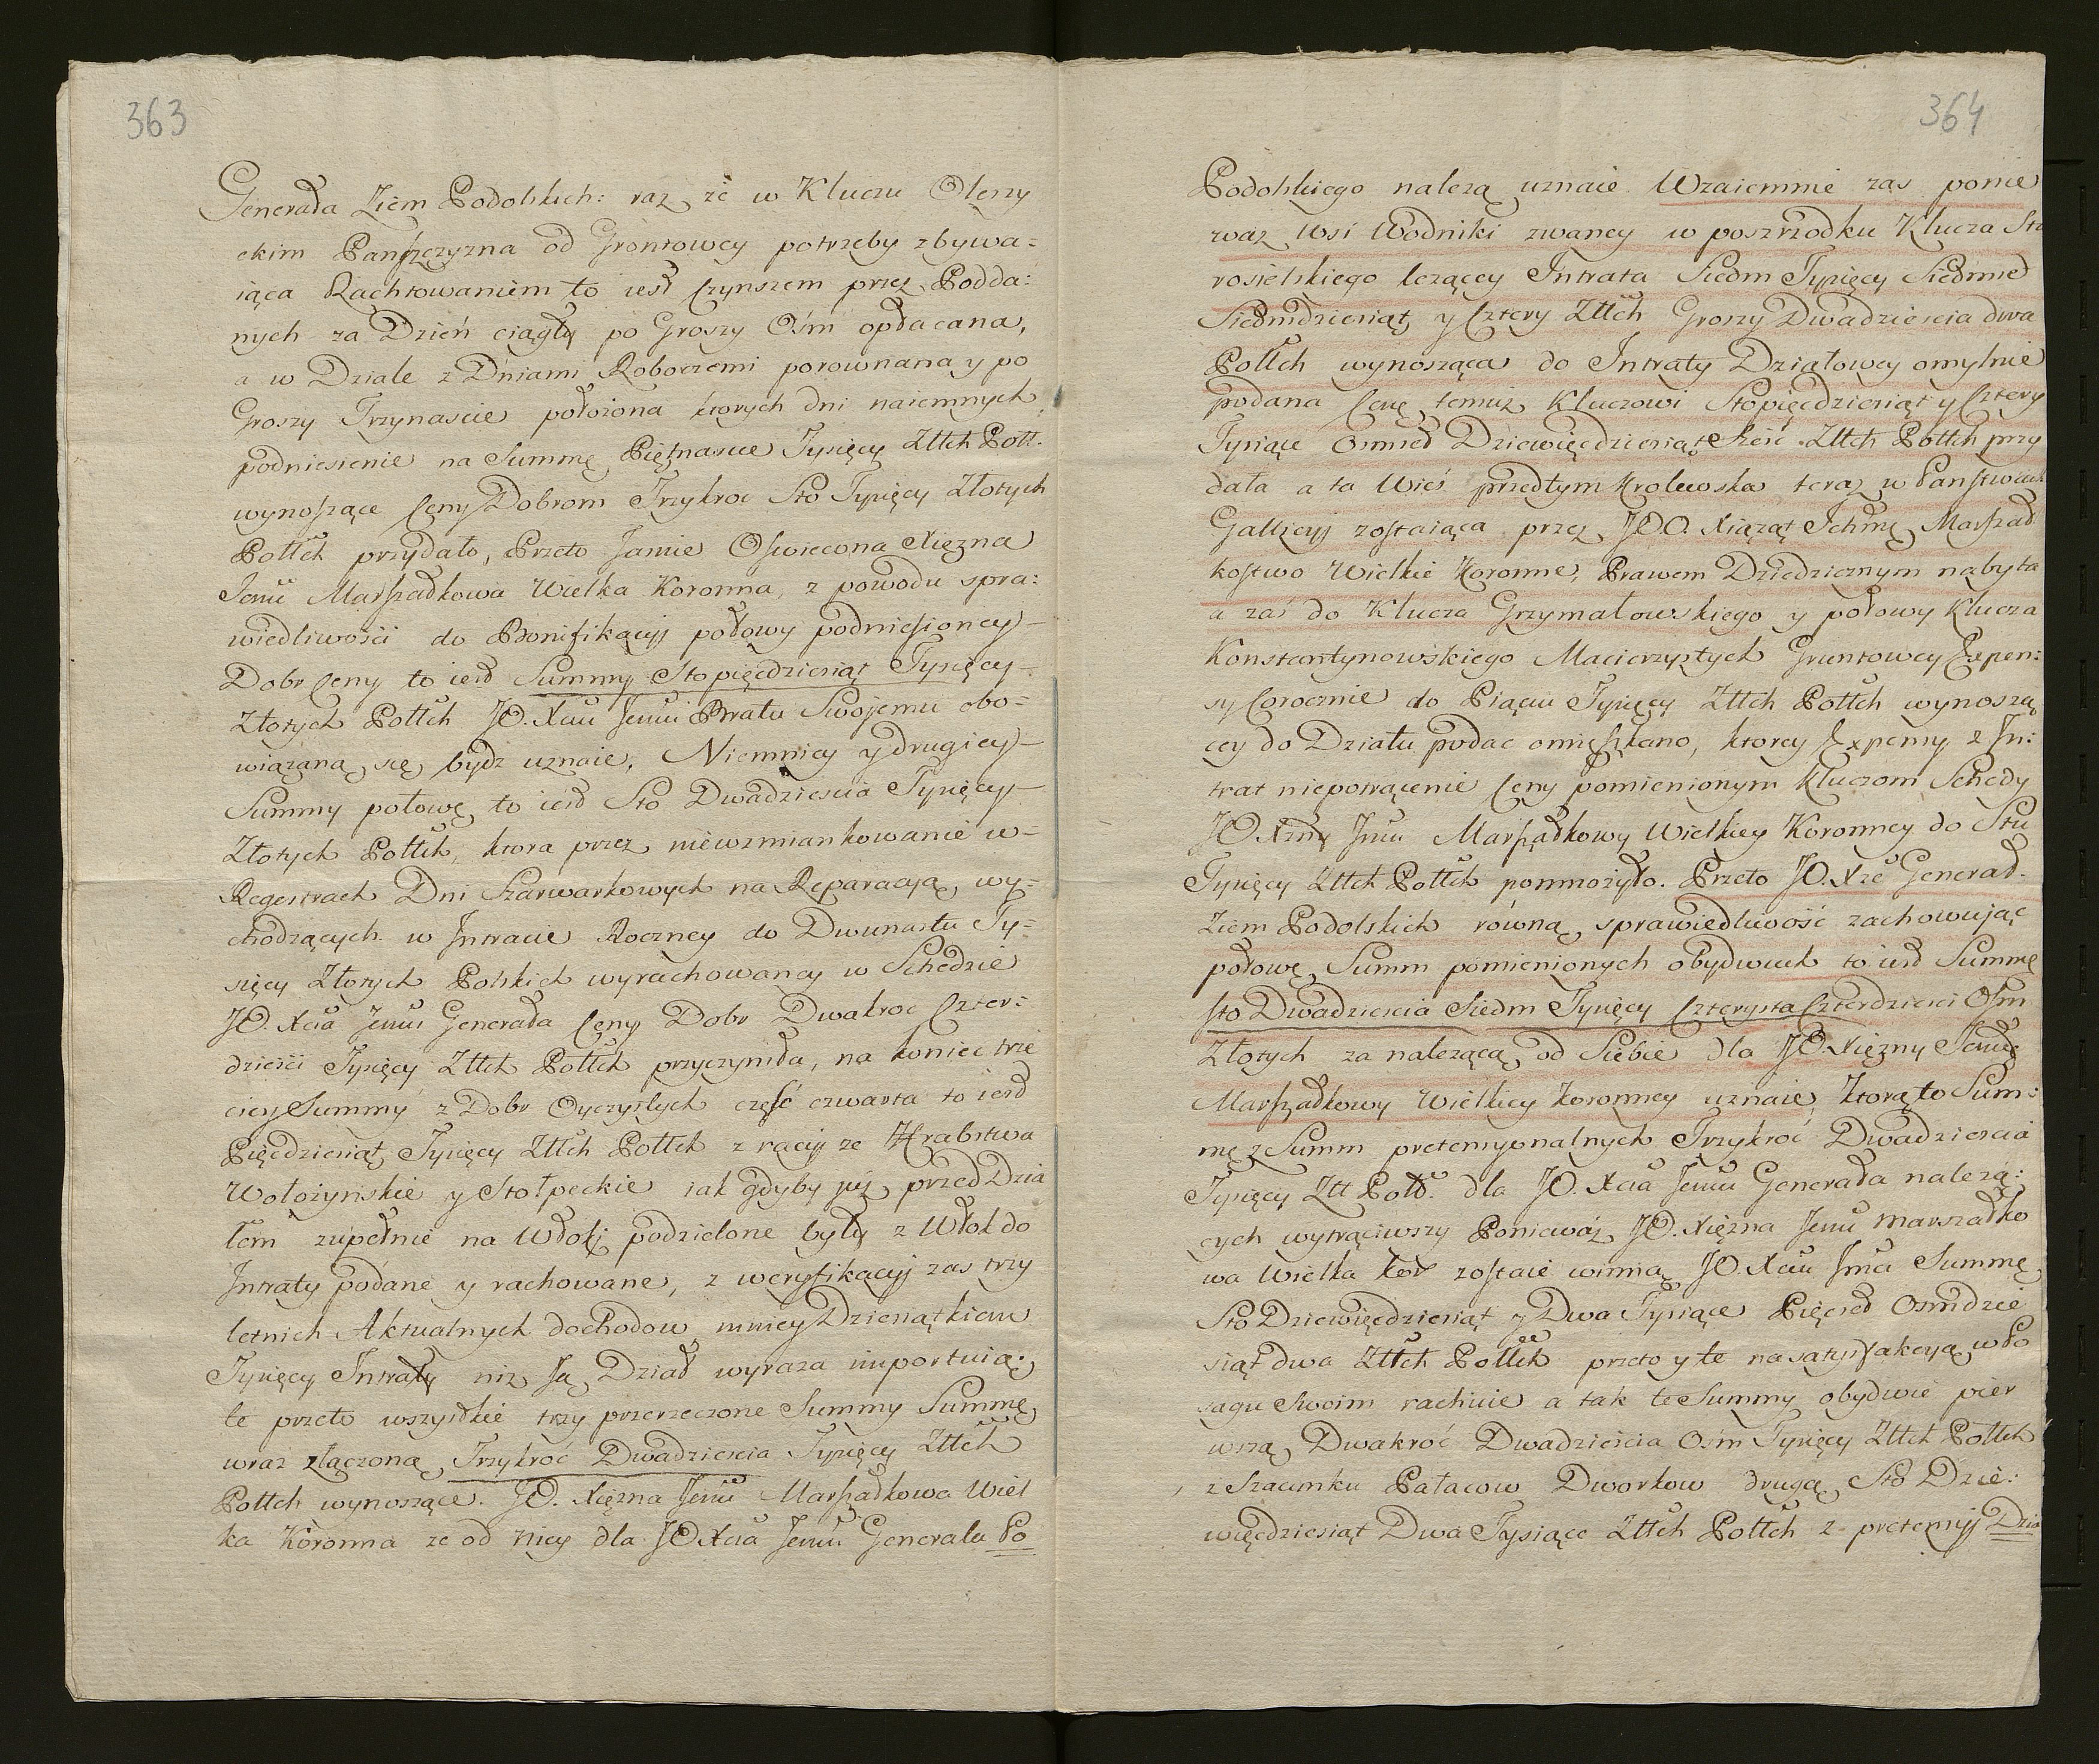 363
Generała Ziem Podolskich: raz że w Kluczu Oleszy
ckim Pańszczyzna od Grontowey potrzeby zbywa=
iąca Rachtowaniem to iest Czynszem przez Podda:
nych za Dzień ciągły po Groszy Ośm opłacana,
a w Dziale z Dniami Roboczemi porownana y po
Groszy Trzynascie położona ktorych dni naiemnych
podniesienie na Summę Piętnascie Tysięcy Złtch Poll.
wynoszące Ceny Dobrom Trzykroc Sto Tysięcy Złotych
Polłch przydało, Przeto Jasnie Oswiecona Xięzna
Jemć Marszałkowa Wielka Koronna, z powodu spra:
wiedliwości do Bonifikacyj połowy podniesioney –
Dobr Ceny to iest Summy Stopięcdziesiąt Tysięcy –
Złotych Polłch JO. Xciu Jemci Bratu Swojemu obo=
wiązaną się bydz uznaie, Niemniey y drugiey –
Summy połowę to iest Sto Dwadziescia Tysięcy –
Złotych Polłch, ktora przez niewzmiankowanie w –
Regestrach Dni Szarwarkowych na Reparacyą wy=
chodzących w Intracie Roczney do Dwunastu Ty=
sięcy Złotych Polskich wyrachowaney w Schedzie
JO. Xcia Jemci Generała Ceny Dobr Dwakroc Czter:
dzieści Tysięcy Złtch Polłch przyczyniła, na koniec trze
ciey Summy z Dobr Oyczystych część czwarta to iest
Pięcdziesiąt Tysięcy Złtch Polłch z racyj ze Hrabstwa
Wołożyńskie y Stołpeckie iak gdyby juz przed Dzia
łem zupełnie na Włoki podzielone były z Włok do
Intraty podane y rachowane, z weryfikacyj zas trzy
letnich Aktualnych dochodow mniey Dziesiątkiem
Tysięcy Intraty niz Ja Dział wyraza importuią:
te przeto wszystkie trzy przerzeczone Summy Summę
wraz złączoną Trzykroć Dwadziescia Tysięcy Złtch
Polłch wynoszące. JO. Xięzna Jemć Marszałkowa Wiel
ka Koronna ze od niey dla JO Xcia Jemci Generała Po
364
Podolskiego nalezą uznaie. Wzaiemnie zas ponie
waz Wsi Wodniki zwaney w poszrzodku Klucza Sta
rosielskiego lezącey Intrata Siedm Tysięcy Siedmset
Siedmdziesiąt y Cztery Złtch Groszy Dwadziescia dwa
Polłch wynosząca do Intraty Działowey omylnie
podana Cenę temuz Kluczowi Stopięcdziesiąt y Cztery
Tysiące Osmset Dziewięcdziesiąt Sześć Złtch Polłch przy
dała a ta Wieś przedtym Krolewska teraz w Panstwach
Gallicyj zostaiąca przez JOO. Xiąząt Ichmć Marszał
kostwo Wielkie Koronne, Prawem Dziedzicznym nabyta
a zaś do Klucza Grzymałowskiego y połowy Klucza
Konstantynowskiego Macierzystych Gruntowey Expen:
sy Corocznie do Piąciu Tysięcy Złtch Polłch wynoszą
cey do Działu podac omieszkano, ktorey Expensy z In:
trat niepotrącenie Ceny pomienionym Kluczom Schedy
JO Xzny Jmci Marszałkowy Wielkiey Koronney do Stu
Tysięcy Złtch Polłch pomnożyło. Przeto JO. Xże Generał
Ziem Podolskich równą sprawiedliwość zachowując
połowę Summ pomienionych obydwuch to iest Summę
sto Dwadziescia Siedm Tysięcy Czterysta Czterdziesci Ośm
Złotych za nalezącą od Siebie dla JO. Xięzny Jemci
Marszałkowy Wielkiey Koronney uznaie, Którą to Sum:
mę z Summ pretensyonalnych Trzykroć Dwadziescia
Tysięcy Złł Poll. dla JO. Xcia Jemci Generała nalezą:
cych wytrąciwszy Ponieważ JO. Xięzna Jemć Marszałko
wa Wielka Kor zostaie winna JO. Xciu Jmci Summę
Sto Dziewięcdziesiąt y Dwa Tysiące Pięcset Osmdzie
siąt dwa Złtch Polłch przeto y te na satysfakcyą w Po
sagu Swoim rachuie a tak te Summy obydwie pier
wszą Dwakroć Dwadzieścia Ośm Tysięcy Złtch Polłch
z Szacunku Pałacow Dworkow drugą Sto Dzie:
więcdziesiąt Dwa Tysiące Złtch Polłch z pretensyj Dzia